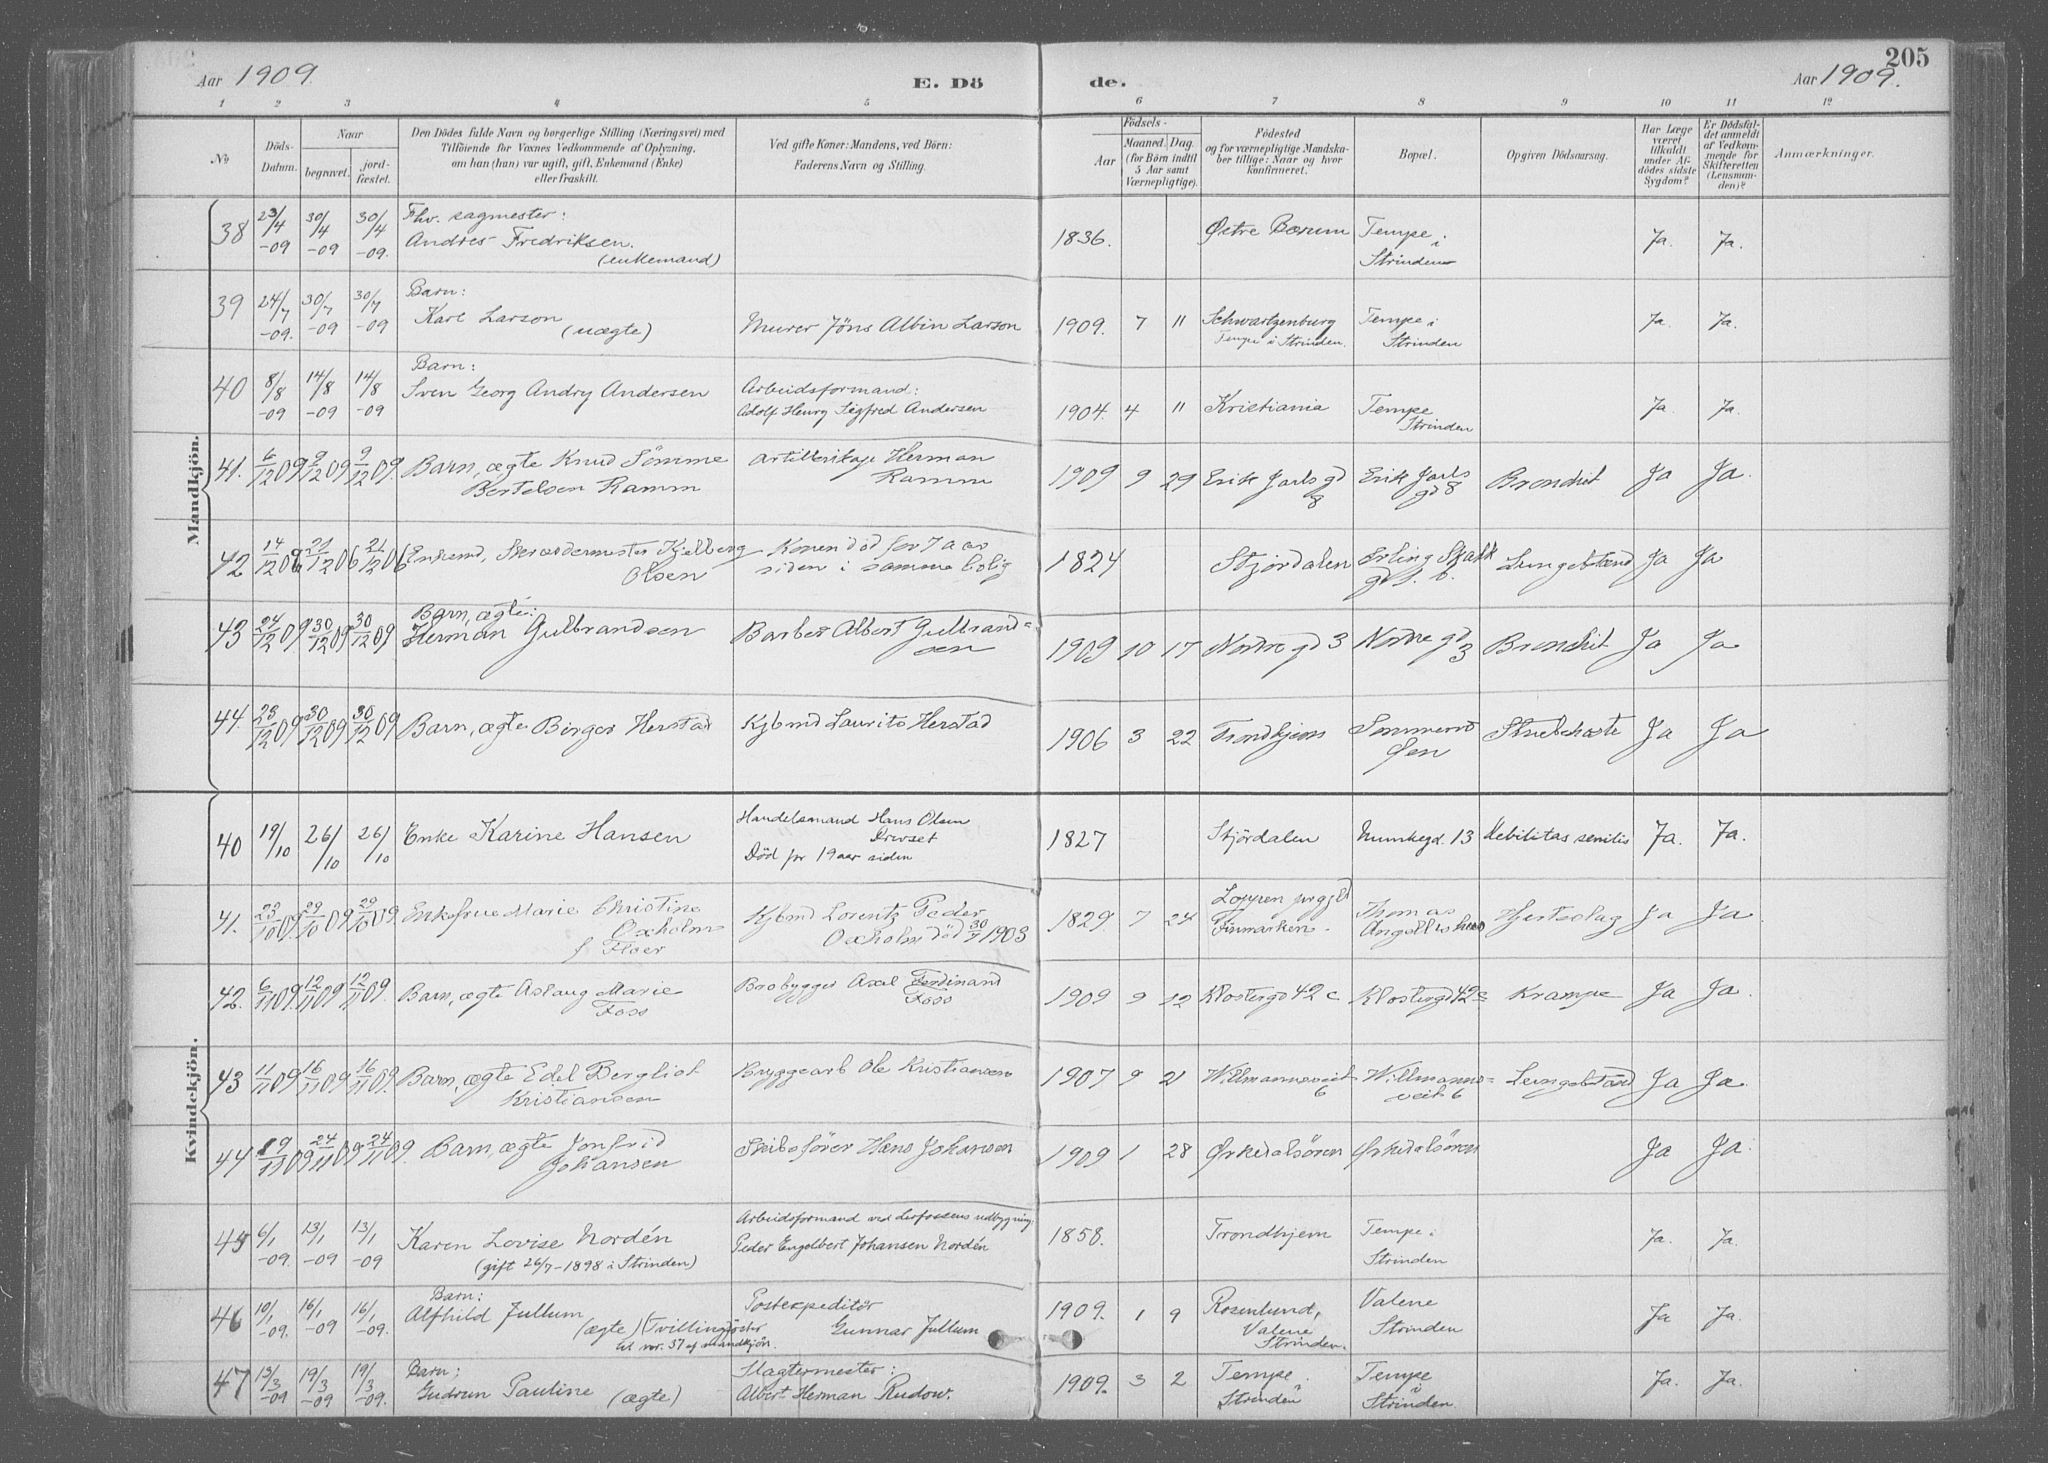 205
Aar 1909. E. Dö de. Aar 1909.
1 2 3 4 5 6 7 8 9 10 11 12
No
Döds-Datum.
Naar
begravet. jordfæstet.
Den Dödes fulde Navn og borgerlige Stilling (Næringsvei) med
Tilföiende for Voxnes Vedkommende af Oplysning,
om han (hun) var ugift, gift, Enkemand (Enke)
eller fraskilt.
Ved gifte Koner: Mandens, ved Börn:
Faderens Navn og Stilling.
Födsels-
Aar
Maaned. Dag.
(for Börn indtil
5 Aar samt
Værnepligtige).
Födested
og for værnepligtige Mandska-
ber tillige: Naar og hvor
konfirmeret.
Bopæl.
Opgiven Dödsaarsag.
Har Læge
været
tilkaldt
under Af-
dödes sidste
Sygdom?
Er Dödsfal-
det anmeldt
af Vedkom-
mende for
Skifteretten
(Lensman-
den)?
Anmærkninger.
Mandkjön.
38 23/4 -09 30/4 -09 30/4 -09. Fhv. sagmester:
Andres Fredriksen.
(enkemand)
1836. Østre Bærum Tempe i
Strinden Ja. Ja.
39 24/7 -09. 30/7 -09 30/7 -09 Barn:
Karl Larson
(uægte) Murer Jöns Albin Larson 1909. 7 11 Schwartzenburg
Tempe i Strinden. Tempe i
Strinden Ja. Ja.
40 8/8 -09 14/8 -09 14/8 -09 Barn:
Sven Georg Andry Andersen Arbeidsformand:
Adolf Henry Sigfred Andersen 1904. 4 11 Kristiania Tempe
Strinden Ja. Ja.
41. 6/12 09 9/12 09 9/12 09. Barn, ægte Knud Sömme
Bertelsen Ramm Herman
Ramm 1909 9 29 Erik Jarls gd
8 Erik Jarls
gd 8 Bronchit Ja Ja.
42 14/12 09 21/12 06 21/12 06 Enkemd, Skræddermester Kjelberg
Olsen Konen död for 7 aar
siden i samme bolig 1824 Stjördalen Erling Skakk
gd Lungebetænd Ja Ja
43 24/12 09 30/12 09 30/12 09 Barn, ægte:
Herman Gulbrandsen Barber Albert Gulbrand-
sen 1909 10 17 Nordre gd 3 Nordre gd
3 Bronchit Ja Ja
44. 23/12 09 30/12 09 30/12 09 Barn, ægte Birger Herstad Kjbmd Laurits Herstad 1906 3 22 Trondhjem
Øen Strubehoste Ja Ja
Kvindekjön.
40 19/10 26/10 26/10 Enke Karine Hansen Handelsmand Hans Olsen
Död for 19 aar siden 1827 Stjördalen Munkegd. 13 Debilitas senilis Ja. Ja.
41. 23/10 09. 29/10 09 29/10 09. Enkefrue Marie Christine
Oxholm
f Floer Kjbmd Lorentz Peder
Oxholm död 30/9 1903 1829. 7 24 Loppen prgjld
Finmarken. Thomas
Angells hus Hjerteslag Ja Ja
42. 6/11 09. 12/11 09 12/11 09. Barn, ægte Aslaug Marie
Foss Brobygger Axel Ferdinand
Foss 1909 9 12 Klostergd 42 c Klostergd 42 c Krampe Ja Ja.
43 11/11 09 16/11 09 16/11 09. Barn, ægte Edel Bergliot
Kristiansen Bryggearb Ole Kristiansen 1907 9 21 Willmannsveit
6 Willmanns-
veit 6 Lungebetænd Ja Ja.
44 19/11 09 24/11 09 24/11 09. Barn, ægte Jonfrid
Johansen Skibsförer Hans Johansen 1909 1 28 Ørkedalsören Ørkedalsören Ja Ja.
45 6/1 -09. 13/1 -09 13/1 -09 Karen Lovise Nordén
(gift 26/7 -1898 i Strinden) Arbeidsformand ved Lerfossens udbygning:
Peder Engelbert Johansen Nordén 1858. Trondhjem Tempe i
Strinden Ja. Ja.
46 10/1 -09. 16/1 -09 16/1 -09. Barn:
Alfhild Jullum
(ægte) (Tvillingsöster
til nr. 37 af mandkjön. Postexpeditör
Gunnar Jullum 1909. 1 9 Rosenlund,
Valene
Strinden. Valene
Strinden Ja Ja.
47 13/3 -09 19/3 -09 19/3 -09. Barn;
Gudrun Pauline (ægte) Slagtermester:
Albert Herman Rudow. 1909. 3 2 Tempe
i
Strinden Tempe
i
Strinden Ja. Ja.